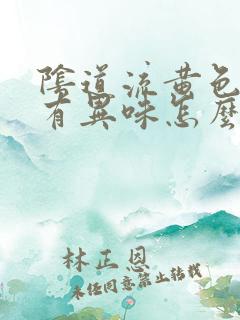 陰道流黃色
有異味怎麼
林正恩
未經同意禁止轉載